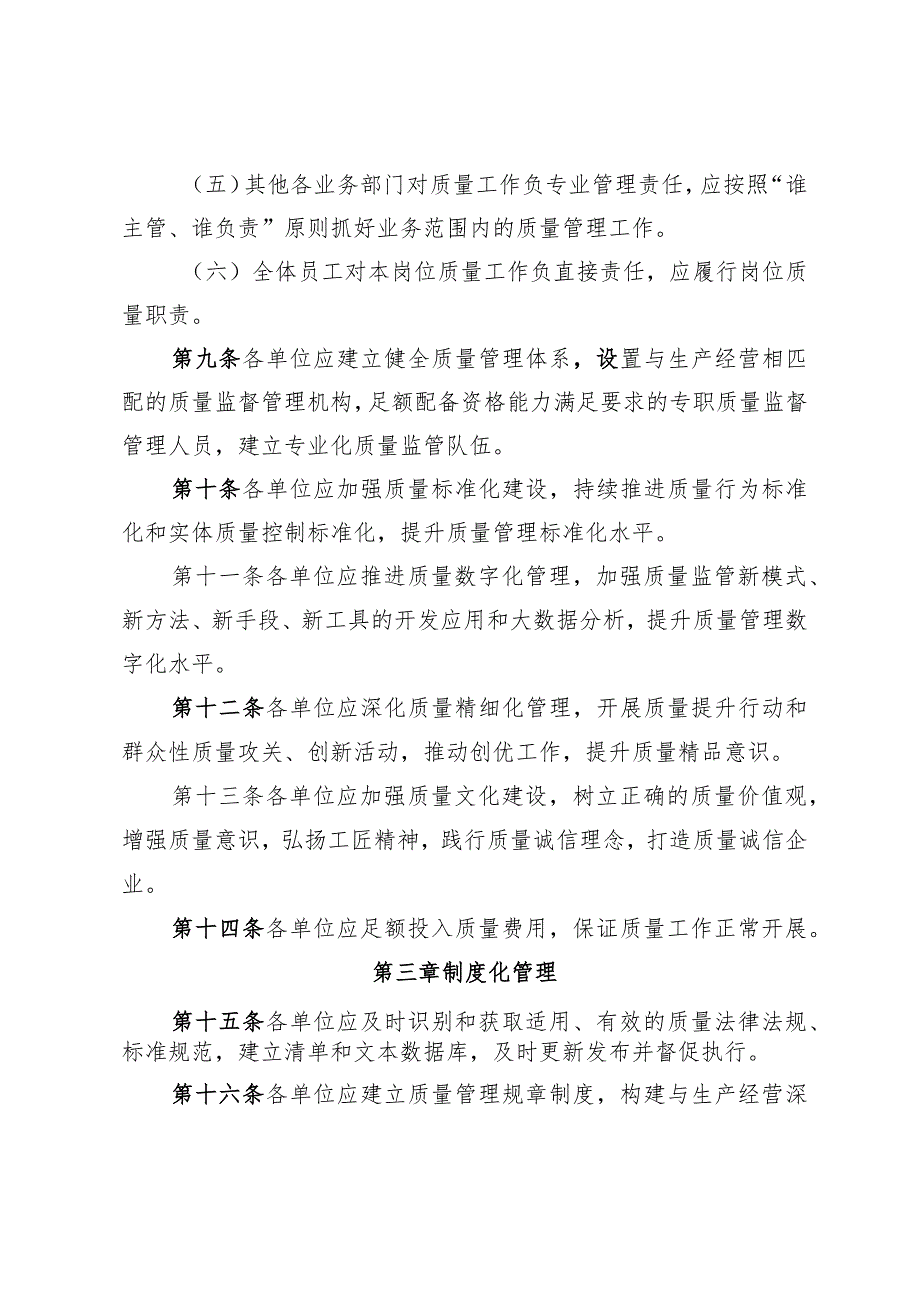 （五）其他各业务部门对质量工作负专业管理责任，应按照“谁
主管、谁负责”原则抓好业务范围内的质量管理工作。
（六）全体员工对本岗位质量工作负直接责任，应履行岗位质
量职责。
第九条各单位应建立健全质量管理体系，设置与生产经营相匹
配的质量监督管理机构，足额配备资格能力满足要求的专职质量监督
管理人员，建立专业化质量监管队伍。
第十条各单位应加强质量标准化建设，持续推进质量行为标准
化和实体质量控制标准化，提升质量管理标准化水平。
第十一条各单位应推进质量数字化管理，加强质量监管新模式、
新方法、新手段、新工具的开发应用和大数据分析，提升质量管理数
字化水平。
第十二条各单位应深化质量精细化管理，开展质量提升行动和
群众性质量攻关、创新活动，推动创优工作，提升质量精品意识。
第十三条各单位应加强质量文化建设，树立正确的质量价值观，
增强质量意识，弘扬工匠精神，践行质量诚信理念，打造质量诚信企
业。
第十四条各单位应足额投入质量费用，保证质量工作正常开展。
第三章制度化管理
第十五条各单位应及时识别和获取适用、有效的质量法律法规、
标准规范，建立清单和文本数据库，及时更新发布并督促执行。
第十六条各单位应建立质量管理规章制度，构建与生产经营深